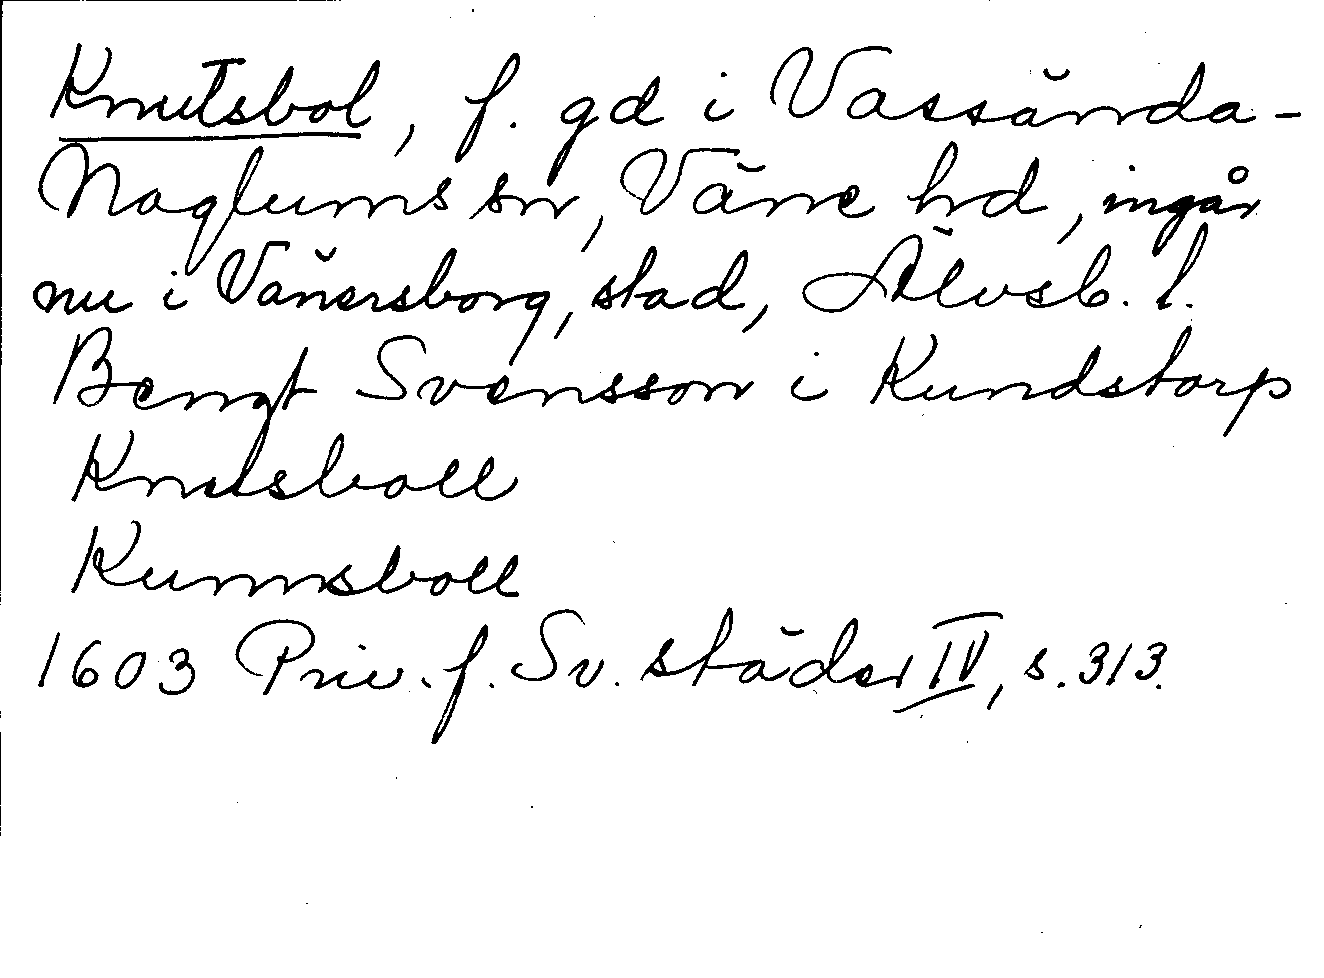 Knutsbol, f. gd i Vassända-
Naglums sn, Väne hd, ingår
nu i Vänersborg, stad, Älvsb. l.
Bengt Svensson i Kundstorp
Knutsboll
Kunnsboll
1603 Priv. f. Sv. städer IV, s. 313.